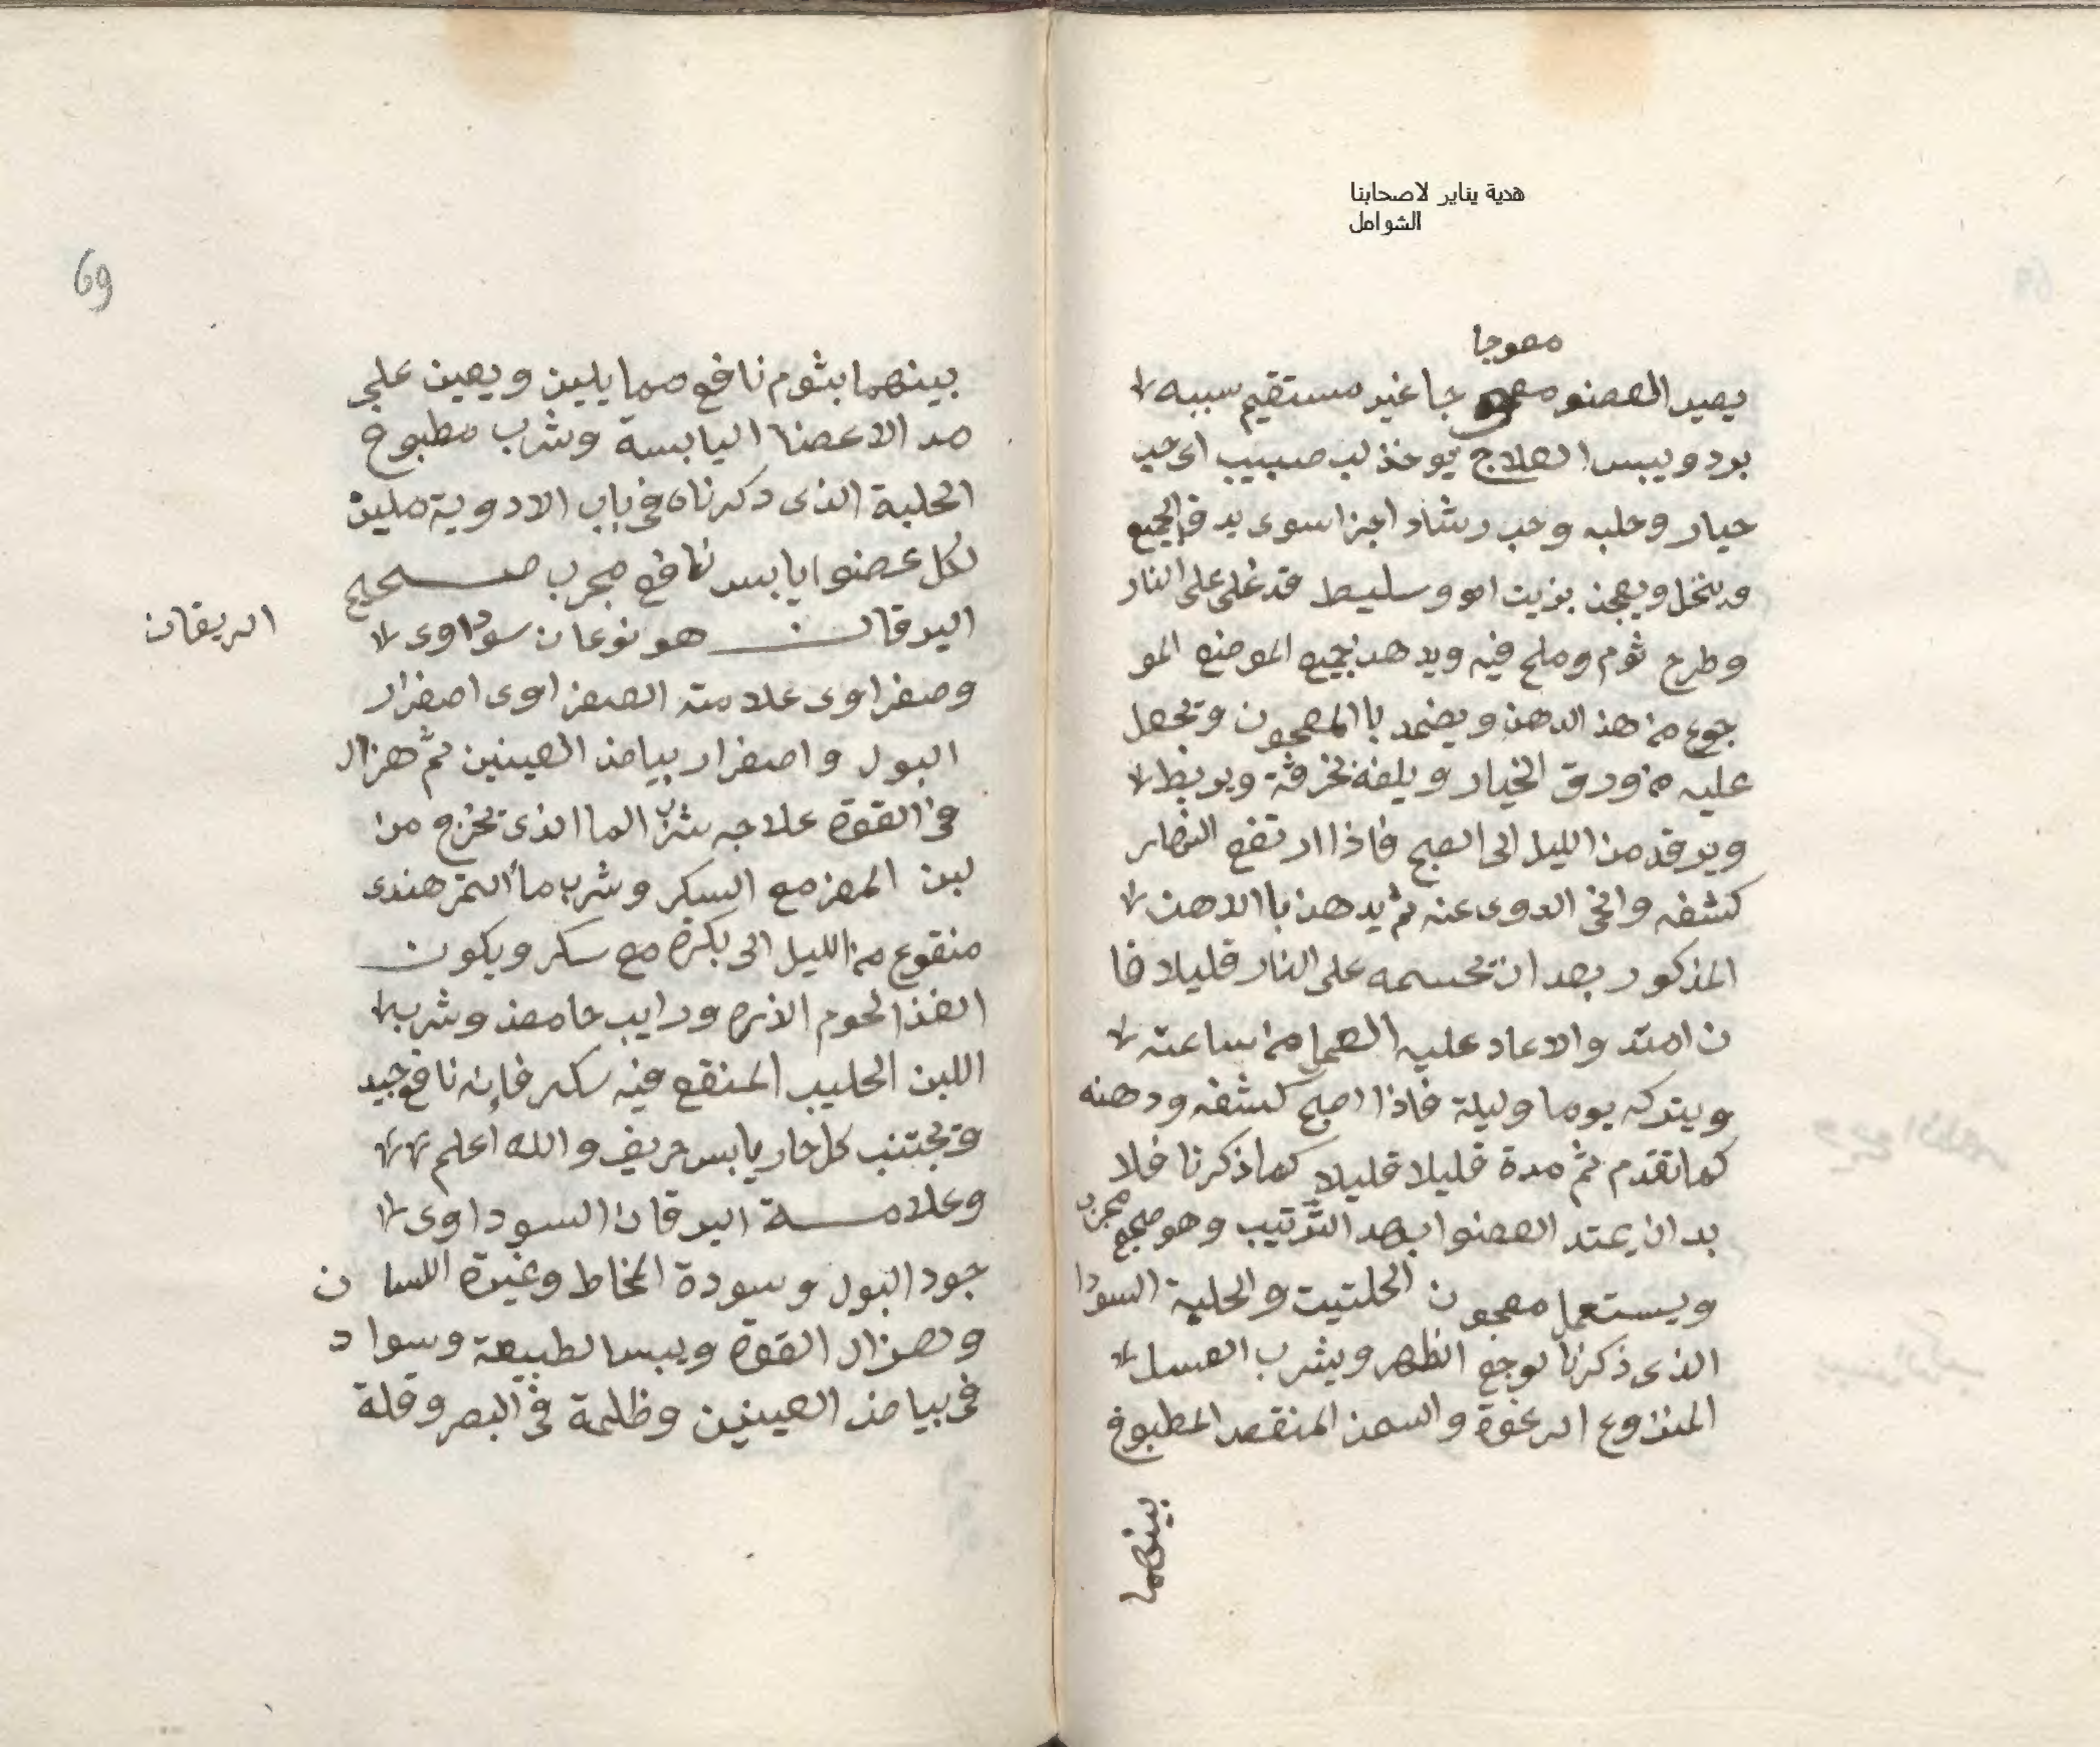 هدية يناير لاصحابنا
الشوامل
معوجا
يصير العضو معوجا غير مستقيم سببه
برد ويبس العلاج يوخذ لب صبيب اى حب
خيار وحلبه وحب رشاد اجزا سوى يدق الجميع
وينخل ويعجن بزيت او وسليط قد غلى على النار
وطرح ثوم وملح فيه ويدهن جميع الموضع المو
جوع من هذ الدهن ويضمد باالمعجون وتجعل
عليه من ورق الخيار ويلفه بخرقة ويربط
ويرقد من الليل الى الصبح فاذا ارتفع النهار
كشفه وانحى الدوى عنه ثم يدهن باالدهن
المذكور بعد ان تحسمه على النار قليلا فا
ن امتد والا عاد عليه العمل من ساعته
ويتركه يوما وليلة فاذا اصبح كشفه ودهنه
كما تقدم ثم مدة قليلا قليلا كما ذكرنا فلا
بد ان يمتد العضوا بعد الترتيب وهو صحيح مجرب
ويستعمل معجون الحلتيت والحلبة السودا
الذى ذكرنا لوجع الظهر ويشرب العسل
المنزوع الرغوة والسمن المنقصد المطبوخ
بينهما
69
بينهما بثوم نافع مما يلين ويعين على
مد الاعضا اليابسة وشرب مطبوخ
الحلبة الذى دكرناه فى باب الادوية ملين
لكل عضوا يابس نافع مجرب صحيح
اليرقان هو نوعان سوداوى
اليرقان
وصفراوى علامته الصفراوى اصفرار
البول واصفرار بياض العينين ثم هزال
فى القوة علاجه شرب الما الذى تخرج من
لبن المعز مع السكر وشرب ما التمر هندى
منقوع من الليل الى بكرة مع سكر ويكون
الغذ الحوم الذره ورايب حامض وشرب
اللبن الحليب المنقع فيه سكر فإنه نافع جيد
وتجتنب كل حار يابس حريف والله اعلم
وعلامة اليرقان السوداوى
جود البول وسودة المخاط وغبرة اللسان
وهزال القوة ويبس الطبيعة وسواد
فى بياض العينين وظلمة فى البصر وقلة